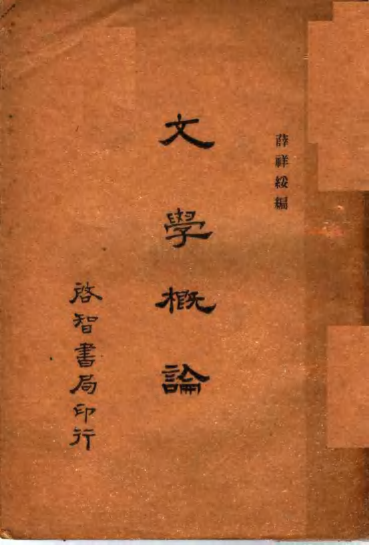 薛祥綏編
文學概論
啓智書局印行